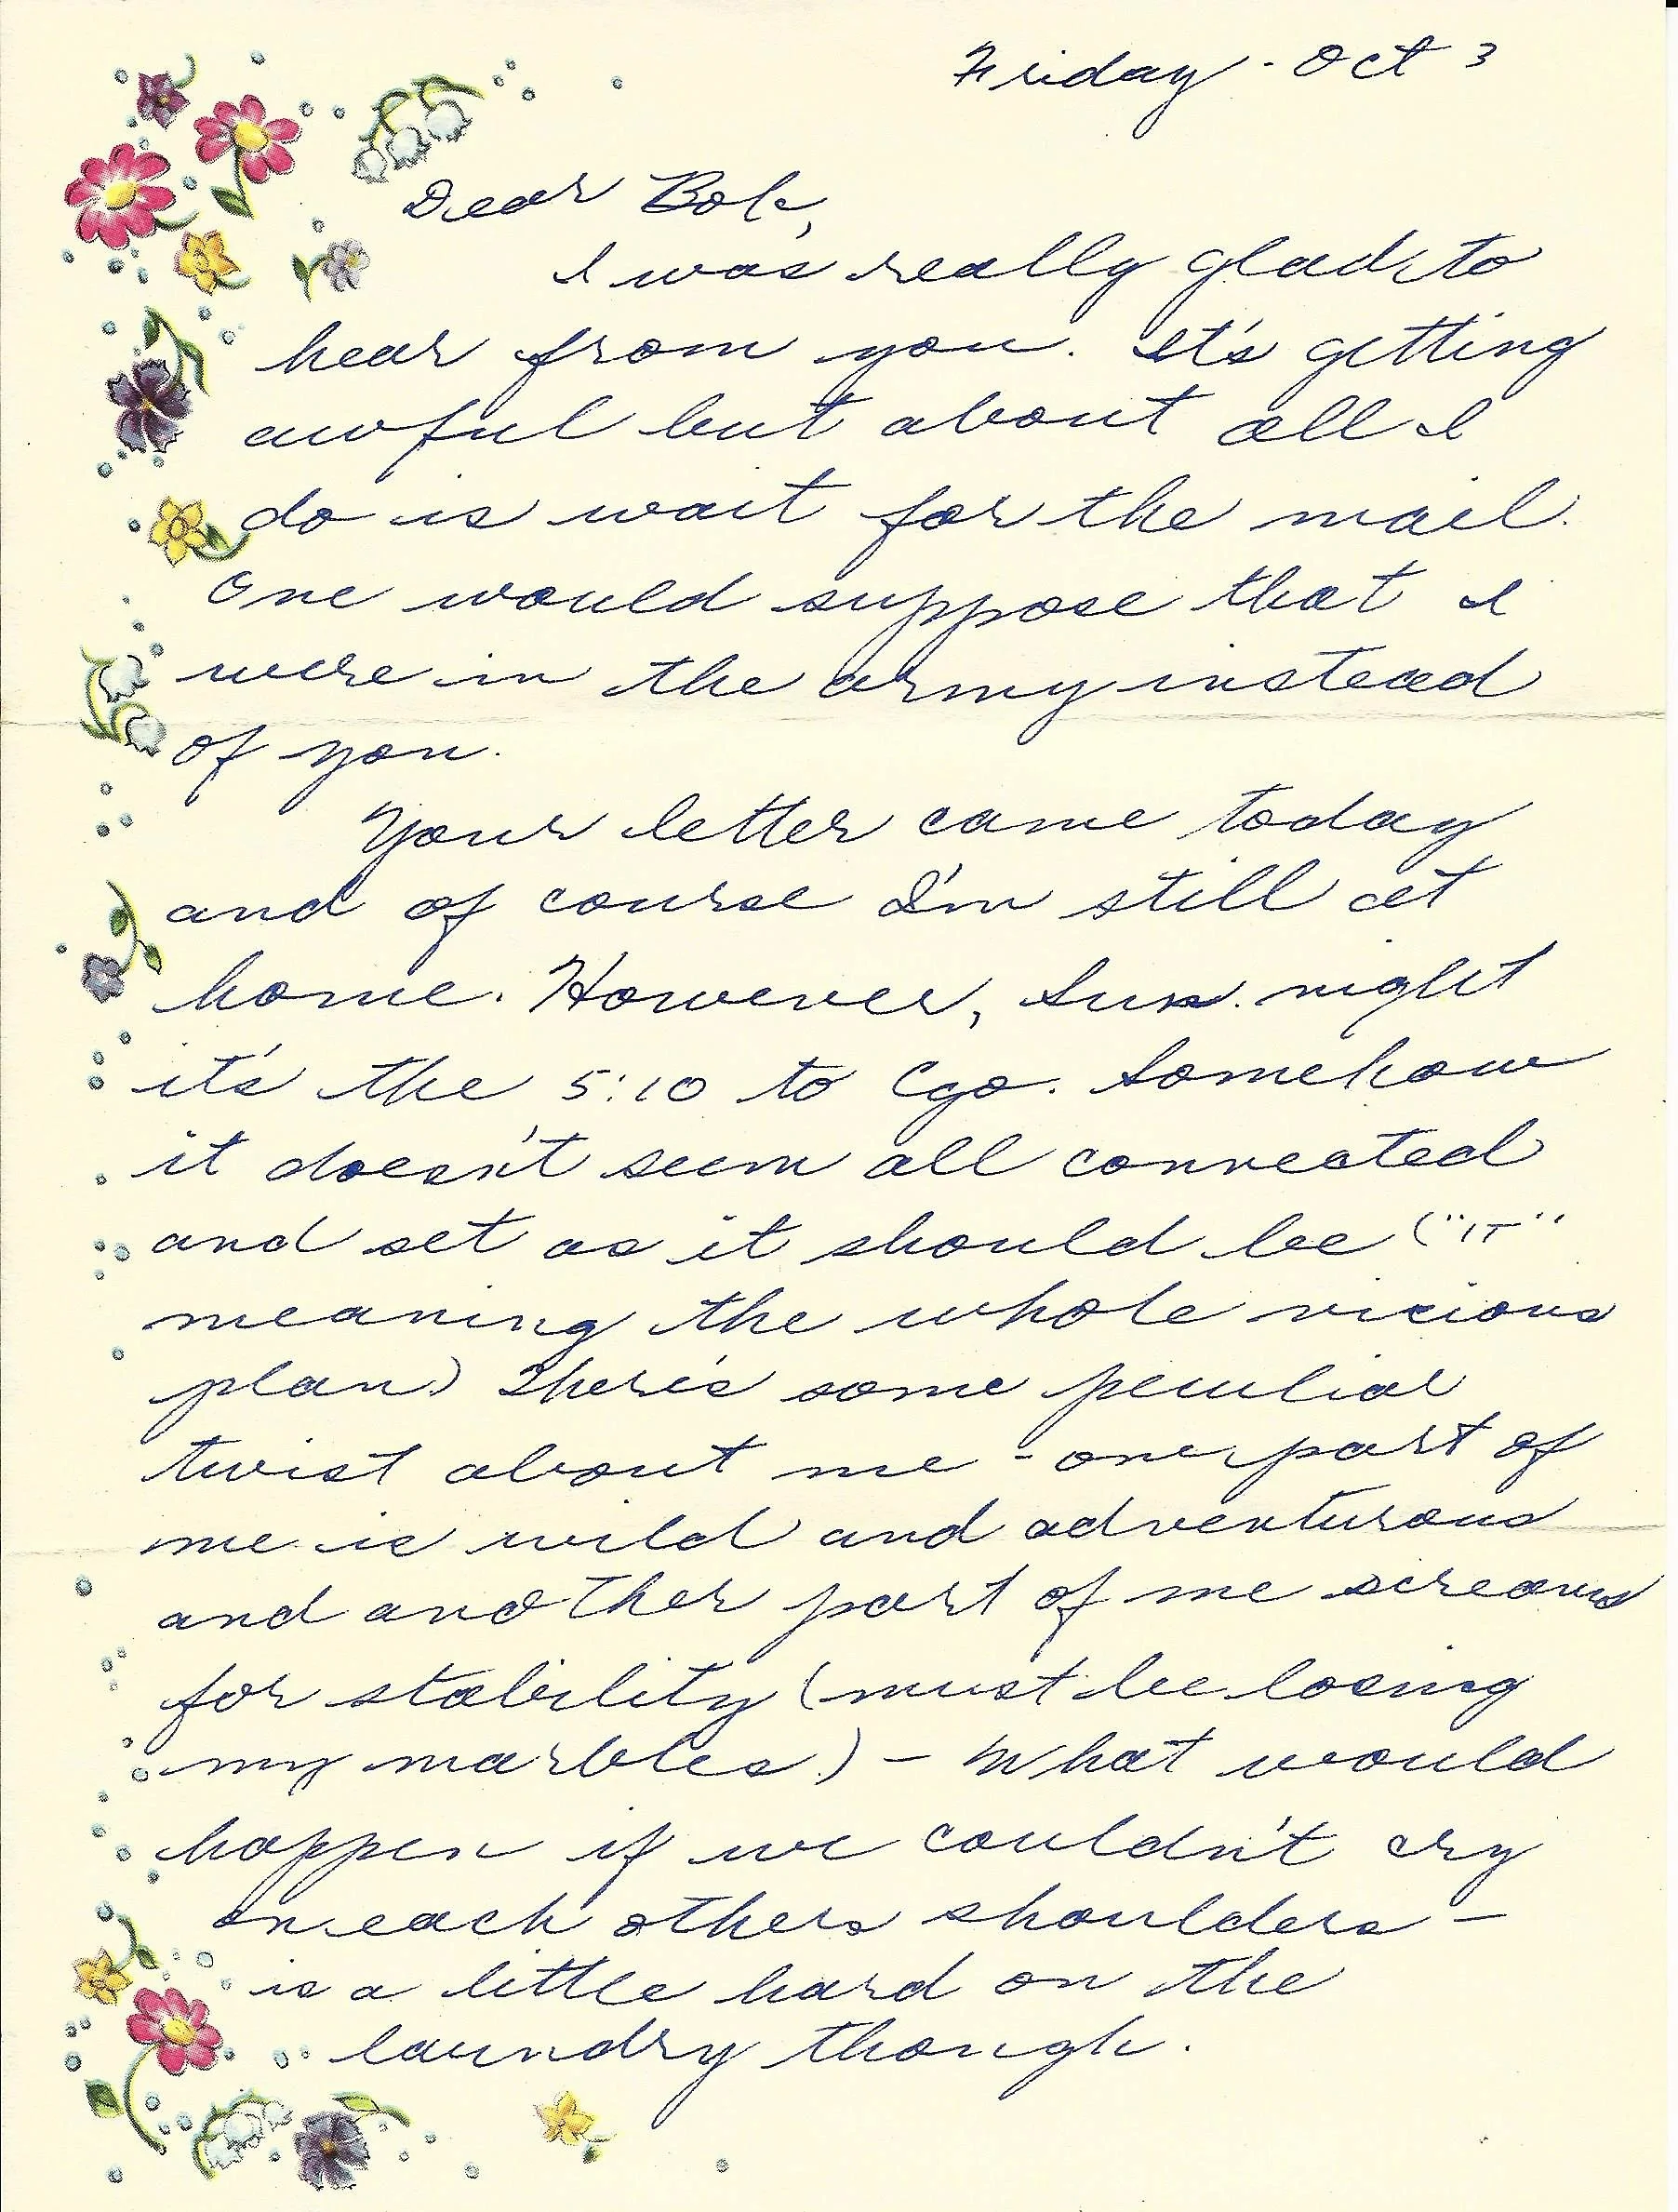 Friday - Oct 3
Dear Bob,
I was really glad to
hear from you. It's getting
awful but about all I
do is wait for the mail.
One would suppose that I
were in the army instead
of you.
Your letter came today
and of course I'm still at
home. However, Sun. night
it's the 5:10 to Cgo. Somehow
it doesn't seem all connected
and set as it should be ("IT"
meaning the whole vicious
plan) There's some peculiar
twist about me - one part of
me is wild and adventurous
and another part of me screams
for stability (must be losing
my marbles.) - What would
happen if we couldn't cry
on each others shoulders -
is a little hard on the
laundry though.